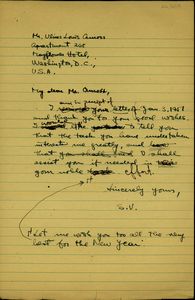 Mr. Ulius Louis Amoss
Apartment 208
Mayflower Hotel,
Washington, D.C.,
U.S.A.
My dear Mr. Amoss,
am in receipt of
I your letter of Jan 3, 1951
and thank you for your good wishes.
I to tell you
that the task you have undertaken
interests me greatly, and
that I shall
assist you if needed in
your noble effort.
it
Sincerely yours,
S.V.
Let me wish you too all the very
best for the New Year.